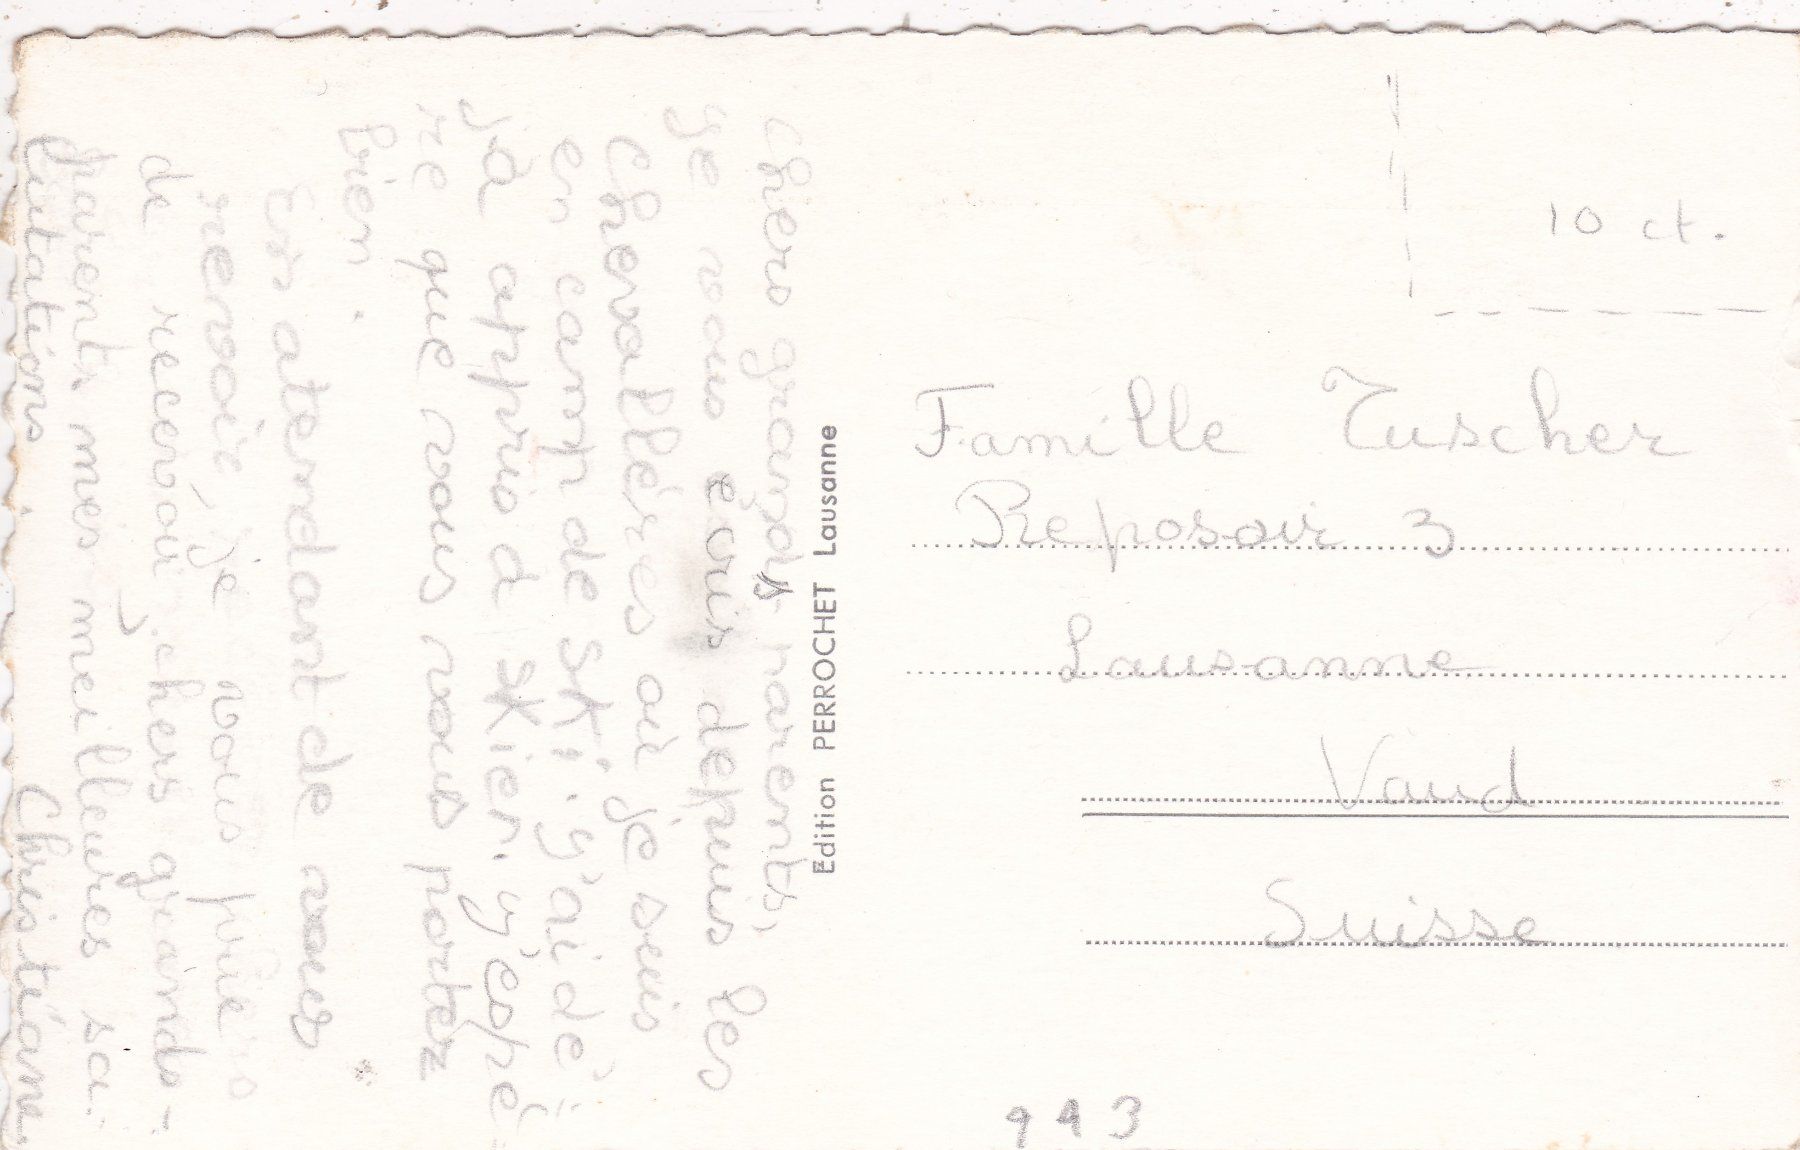 chers grands parents,
Je vous ecris depuis les
Chevallères où je suis
en camp de ski. J'ai dé
jà appris à skier. J'espè
re que vous vous portez
bien.
En atendant de vous
revoir, je vous prie
de recevoir, chers grands-
parents mes meilleures sa-
lutations.
Christiane
Edition PERROCHET Lausanne
10 ct.
Famille Tuscher
Reposoir 3
Lausanne
Vaud
Suisse
993